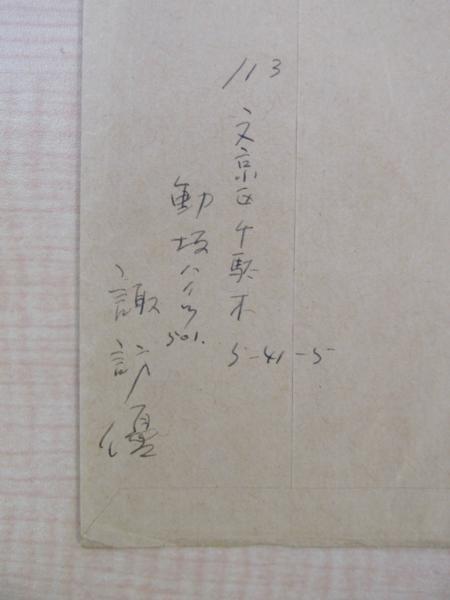 113
文京区千駄木
5-41-5
動坂ハイツ
501.
諏訪優